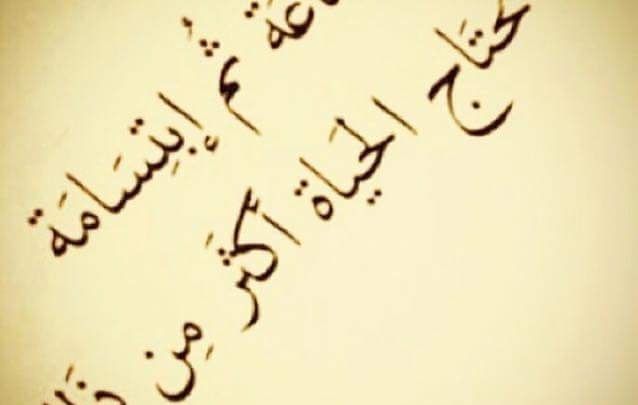 ثُم إبتِسَامَة
تحتَاج الحَياة أكثَر مِن